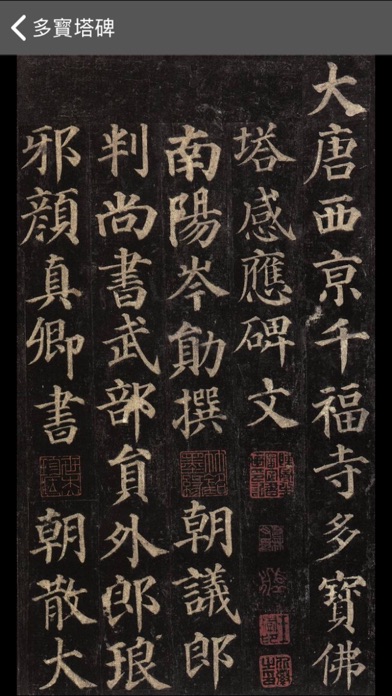 多寶塔碑
大唐西亰千福寺多寶佛
塔感應碑文
南陽岑勛撰 朝議郎
判尚書武部貟外郎琅
邪顏真卿書 朝散大